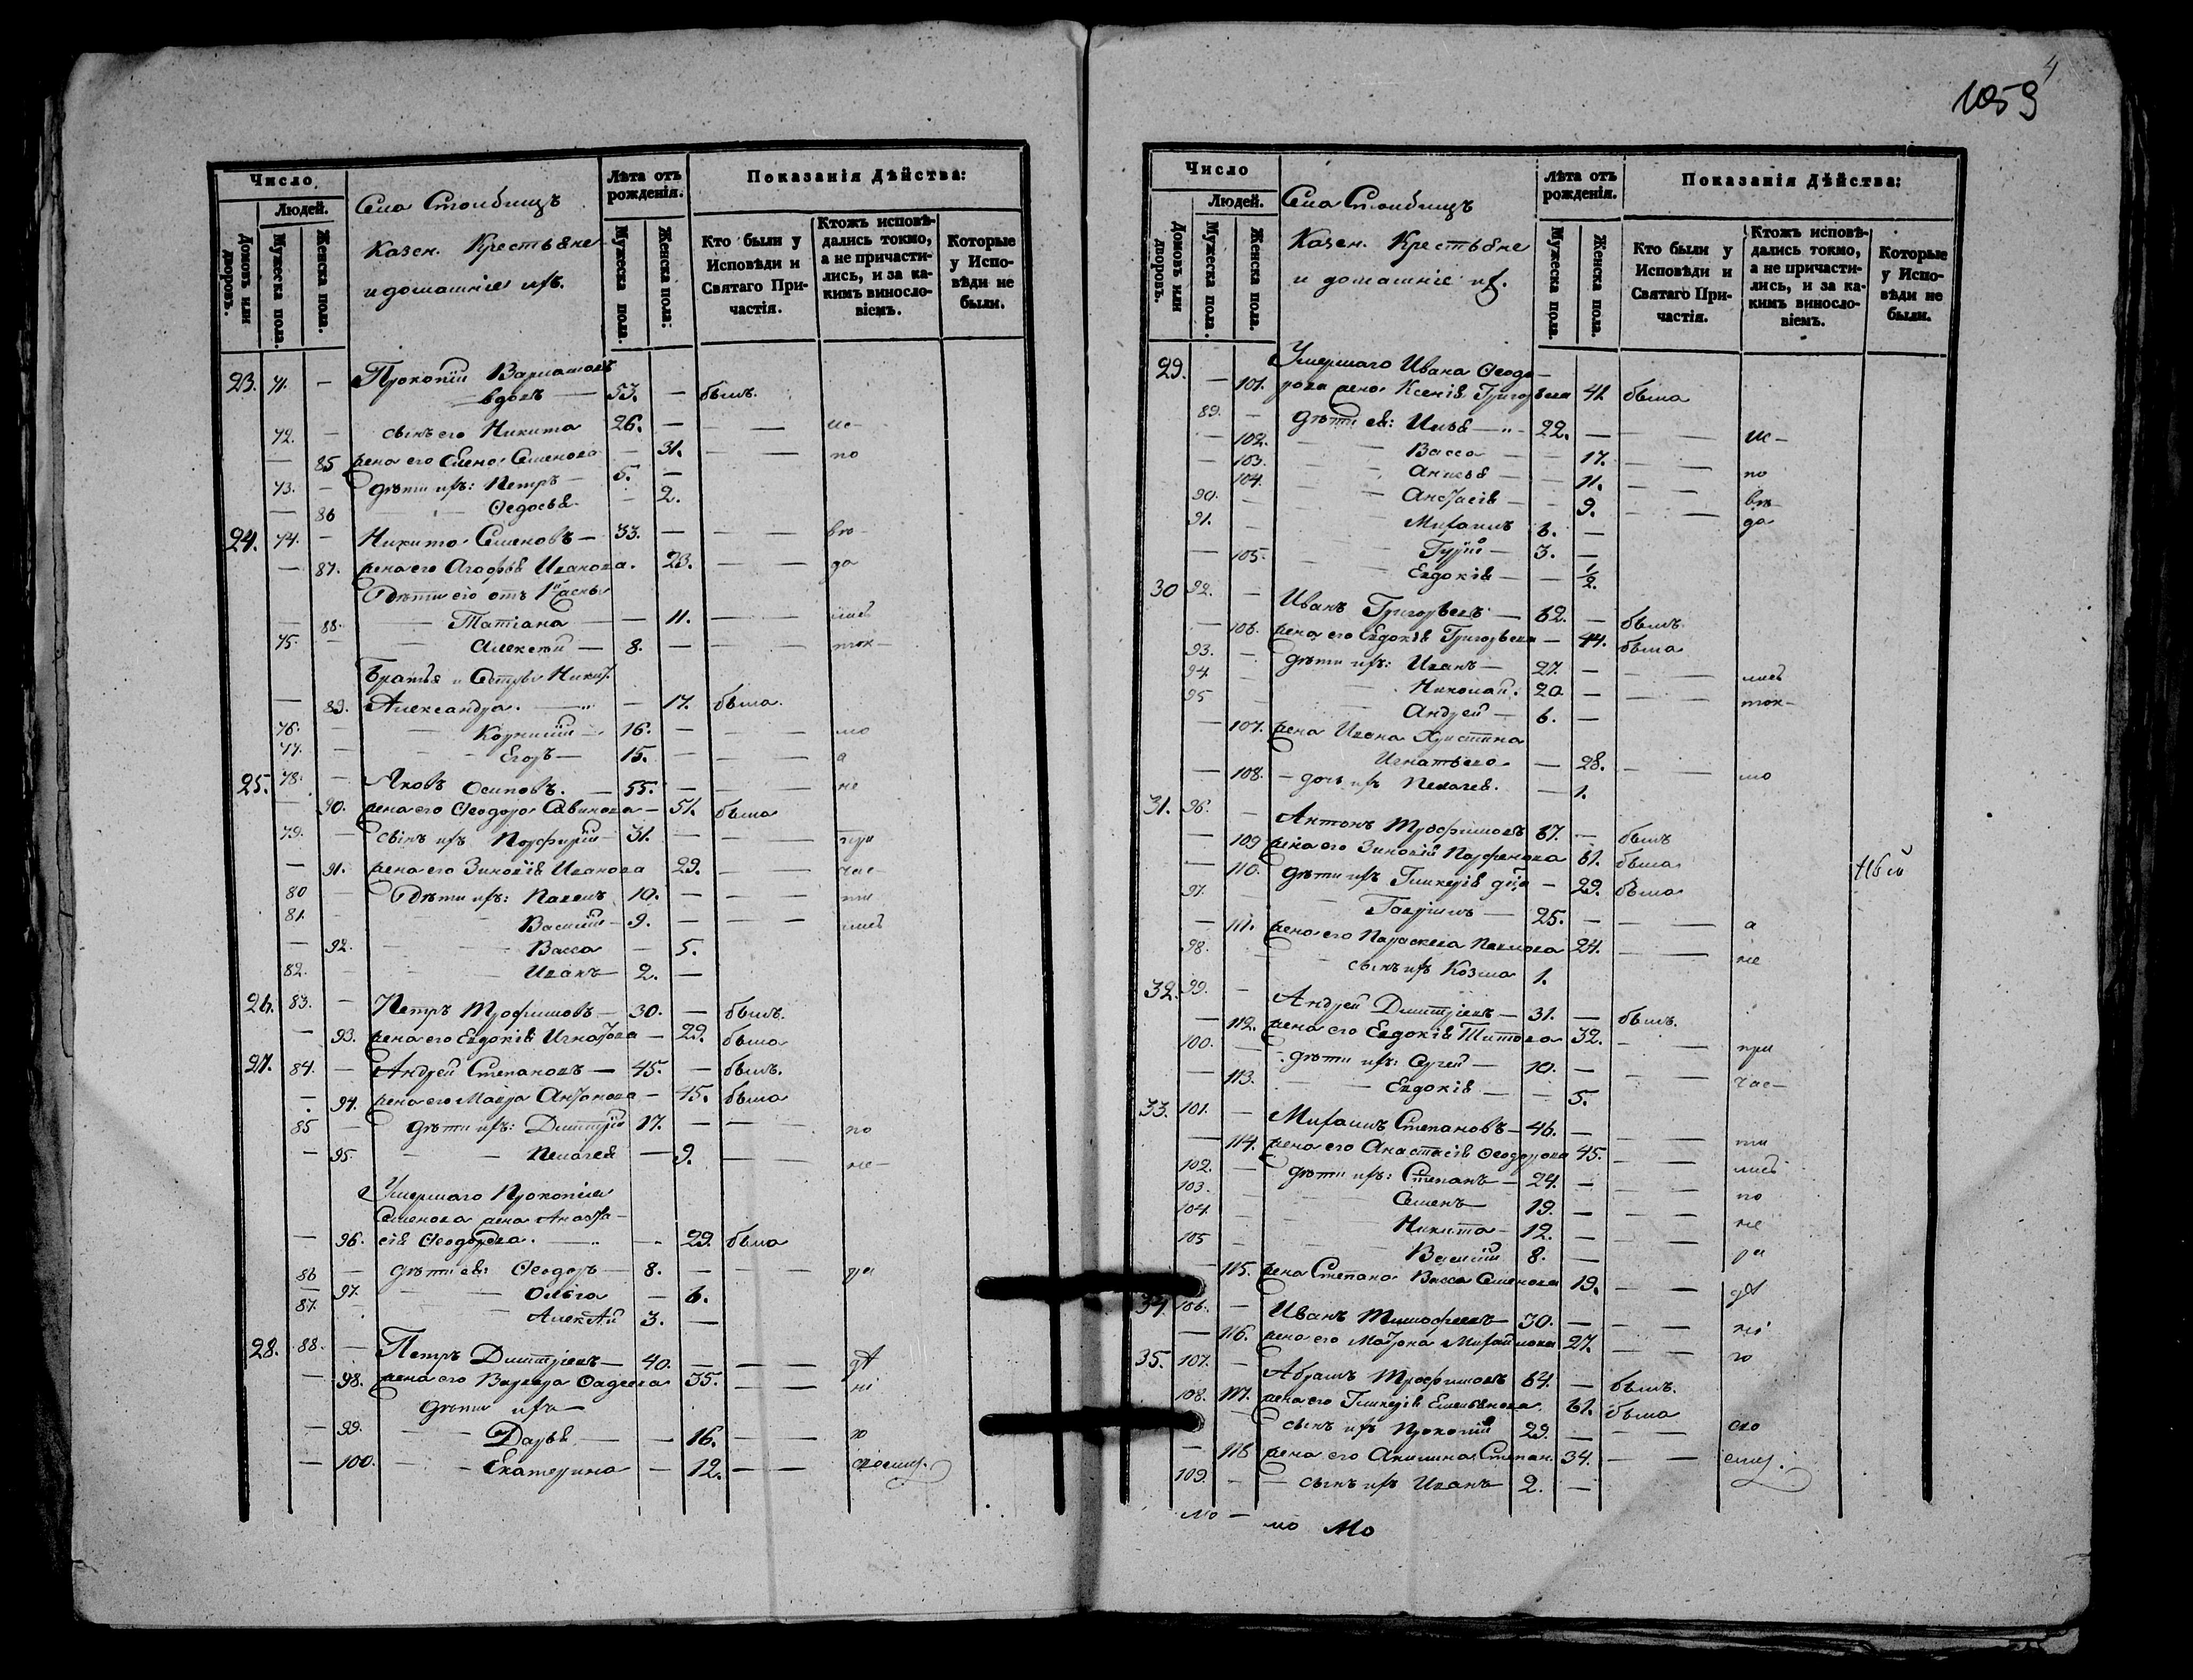 Число
Людей.
Домовъ или дворовъ.
Мужеска пола.
Женска пола.
Села Столбищъ
Казен. Крестьяне
и домашніе ихъ.
Лѣта отъ рожденія.
Мужеска пола.
Женска пола:
Показанія Дѣйства:
Кто были у Исповѣди и Святаго Причастія.
Ктожъ исповѣдались токмо, а не причастились, и за какимъ винословіемъ.
Которые у Исповѣди не были.
23. 71. — Прокопій Варламовъ
вдовъ — 53. — былъ.
72. — сынъ его Никита 26. — — — ис-
— 85 жена его Елена Семенова — 31. — — по
73. — дѣти ихъ: Петръ — 5. —
— 86 — Ѳедосья — 2.
24. 74. — Никита Семеновъ — 33. — — — вѣ-
— 87. жена его Агафья Иванова. 23. — — да
Дѣти его отъ 1й жены
— 88. — Татіана — — 11. — — лись
75. — Алексѣй — 8. — — — ток-
Братья и Сестры Никит.
— 89. Александра. — 17. была.
76. — Корнилій — 16. — — — мо
77. — Егоръ — 15. — — а
25. 78. — Яковъ Осиповъ. — 55. — — — не
— 90. жена его Ѳеодора Савинова — 51. была
79. — сынъ ихъ Порфирій — 31. — — при
— 91. жена его Зиновія Иванова 29. — — час-
80 — Дѣти ихъ: Павелъ 10. — — — ти
81. — Василій — 9. — — — лись
— 92. — Васса — 5.
82. — Иванъ — 2. —
26. 83. — Петръ Трофимовъ — 30. — былъ.
— 93. жена его Евдокія Игнатова — 29. была
27. 84. — Андрей Степановъ — 45. — былъ.
— 94. жена его Мавра Антонова — 45. была
85 — дѣти ихъ: Димитрій 17. — — по
— 95. — Пелагея — 9. — — не-
Умершаго Прокопія
Семенова жена Анаста-
— 96. сія Ѳеодорова. — 29. была
86 — дѣти ея: Ѳеодоръ — 8. — — — ра
— 97. — Ольга — 6.
87. — Алексѣй 3. —
28. 88. — Петръ Димитріевъ — 40. — — — дѣ
— 98. жена его Варвара Ѳадеева 35. — — ні
дѣти ихъ —
— 99. — Дарья — — 16. — — ю
— 100. — Екатерина — 12. — —
4
1059
Число
Людей.
Домовъ или дворовъ.
Мужеска пола.
Женска пола.
Села Столбищъ
Казен. Крестьяне
и домашніе их.
Лѣта отъ рожденія.
Мужеска пола.
Женска пола.
Показанія Дѣйства:
Кто были у Исповѣди и Святаго Причастія.
Ктожъ исповѣдались токмо, а не причастились, и за какимъ винословіемъ.
Которые у Исповѣди не были.
29. Умершаго Ивана Ѳеодо-
— 101. рова жена Ксенія Григорьева 41 была
89. — дѣти ея: Илья — 22. — — — ис-
— 102. — Васса — 17. — — по
— 103. — Анисья — 11. — — вѣ-
— 104. — Анастасія — 9. — — да
90. — Михаилъ 6. —
91. — Гурій — 3. —
— 105. — Евдокія — — 1/2.
30 92. — Иванъ Григорьевъ — 62. — былъ.
— 106. жена его Евдокія Григорьева — 44. была
93. — дѣти ихъ: Иванъ — 27. — — — лись
94. — Николай. 20. — — — ток-
95 — Андрей — 6. —
— 107. жена Ивана Христина
Игнатьева — 28. — — мо
— 108. — дочь ихъ Пелагея. — 1.
31. 96. — Антонъ Трофимовъ 67. — былъ
— 109 жена его Зиновія Парфенова 61. была
— 110. дѣти ихъ Гликерія — 29. была
97. — Гавріилъ — 25. — — — а
— 111. жена его Параскева Павлова 24. — — не
98. — сынъ ихъ Козма 1.
32. 99. — Андрей Димитріевъ — 31. — былъ.
— 112. жена его Евдокія Титова 32. — — при
100. — дѣти ихъ: Сергей — 10. — — — час-
— 113. — Евдокія — — 5.
33. 101. — Михаилъ Степановъ — 46. — — — ти
— 114. жена его Анастасія Ѳеодорова 45. — — лись
102. — дѣти ихъ: Степанъ — 24. — — — по
103. — Семенъ 19. — — — не
104. — Никита — 12. — — — ра
105 — Василій 8. —
— 115. жена Степана Васса Семенова 19. — — дѣ
34. 106. — Иванъ Тимофеевъ — 30. — — — ні
— 116. жена его Матрона Михайлова 27. — — ю
35. 107. — Абрамъ Трофимовъ 64. — былъ.
— 117. жена его Гликерія Емельянова 61. была
108. — сынъ ихъ Прокопій 29. — — —
— 118 жена его Акилина Степан. 34. — —
109. — сынъ ихъ Иванъ 2. —